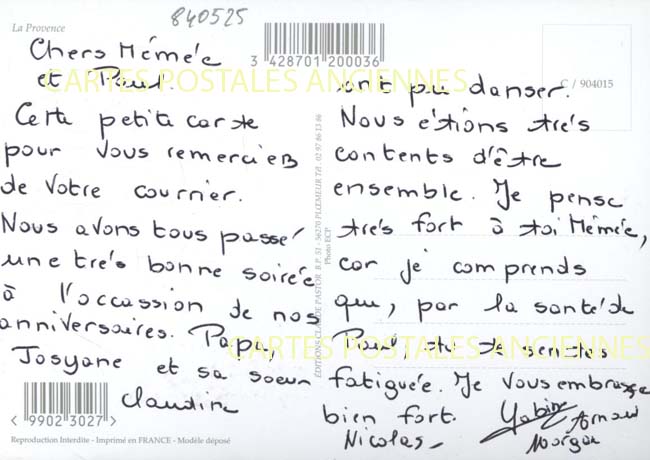 840525
La Provence
3 428701 200036
C / 904015
CARTES POSTALES ANCIENNES
Chers Mémée
et Paul.
Cette petite carte
pour vous remercier
de votre courrier.
Nous avons tous passé
une très bonne soirée
à l'occassion de nos
anniversaires. Papi,
Josyane et sa soeur
Claudine
ont pu danser.
Nous étions très
contents d'être
ensemble. Je pense
très fort à toi Mémée,
car je comprends
que, par la santé de
Paul tu te sentes
fatiguée. Je vous embrasse
bien fort.
Nicolas
Arnaud
Morgan
CARTES POSTALES ANCIENNES
EDITIONS CLAUDE PASTOR B.P. 51 - 56270 PLOEMEUR Tél. 02 97 86 13 86
Photo ECP
< 9902 3027 >
Reproduction Interdite - Imprimé en FRANCE - Modèle déposé